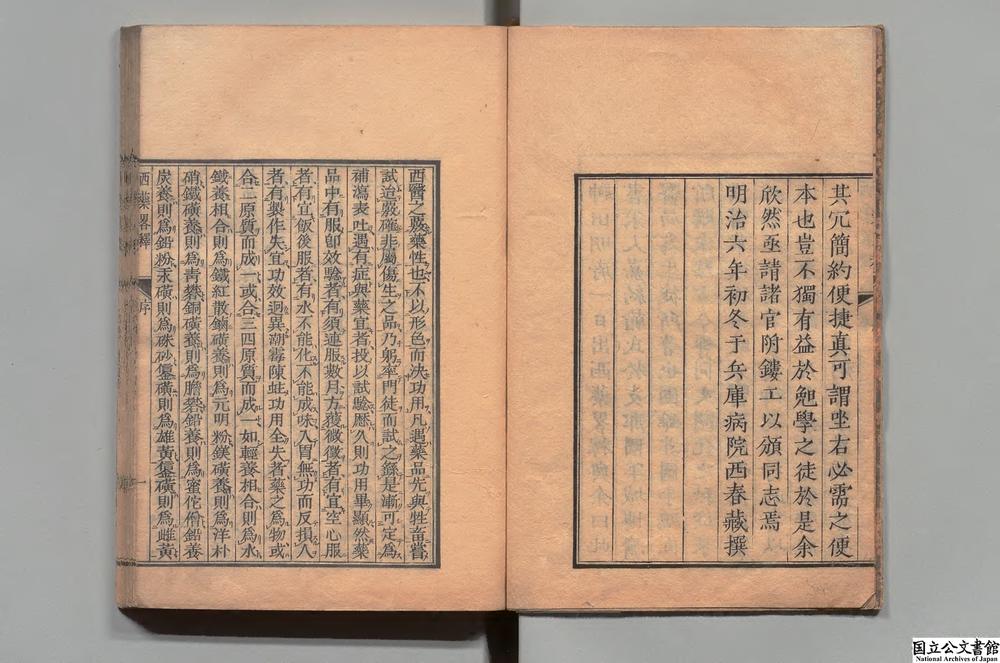 其冗簡約便捷真可謂坐右必需之便
本也豈不獨有益於勉學之徒於是余
欣然亟請諸官附鏤工以頒同志焉
明治六年初冬于兵庫病院西春蔵撰
西醫之驗藥性也不以形色而決功用凡遇藥品先與牲畜嘗
試迨嚴確非屬傷生之品乃躬率門徒而試之繇是漸可定為
補瀉表吐遇有症與藥宜者投以試驗歷久則功用畢顯然藥
品中有服卽效驗者有須連服數月方獲微徵者有宜空心服
者有宜飯後服者有水不能化不能成味入胃無功而反損人
者有製作失宜功效迥異潮霉陳蛀功用全失者藥之為物或
合二原質而成一或合三四原質而成一如輕養相合則為水
鐵養相合則為鐵紅散鏀磺養則為元明粉鎂磺養則為洋朴
硝鐵磺養則為青礬銅磺養則為膽礬鉛養則為蜜佗僧鉛養
炭養則為鉛粉汞磺則為硃砂磺則為雄黃磺則為雌黃
西藥畧釋
序
一
国立公文書館
National Archives of Japan